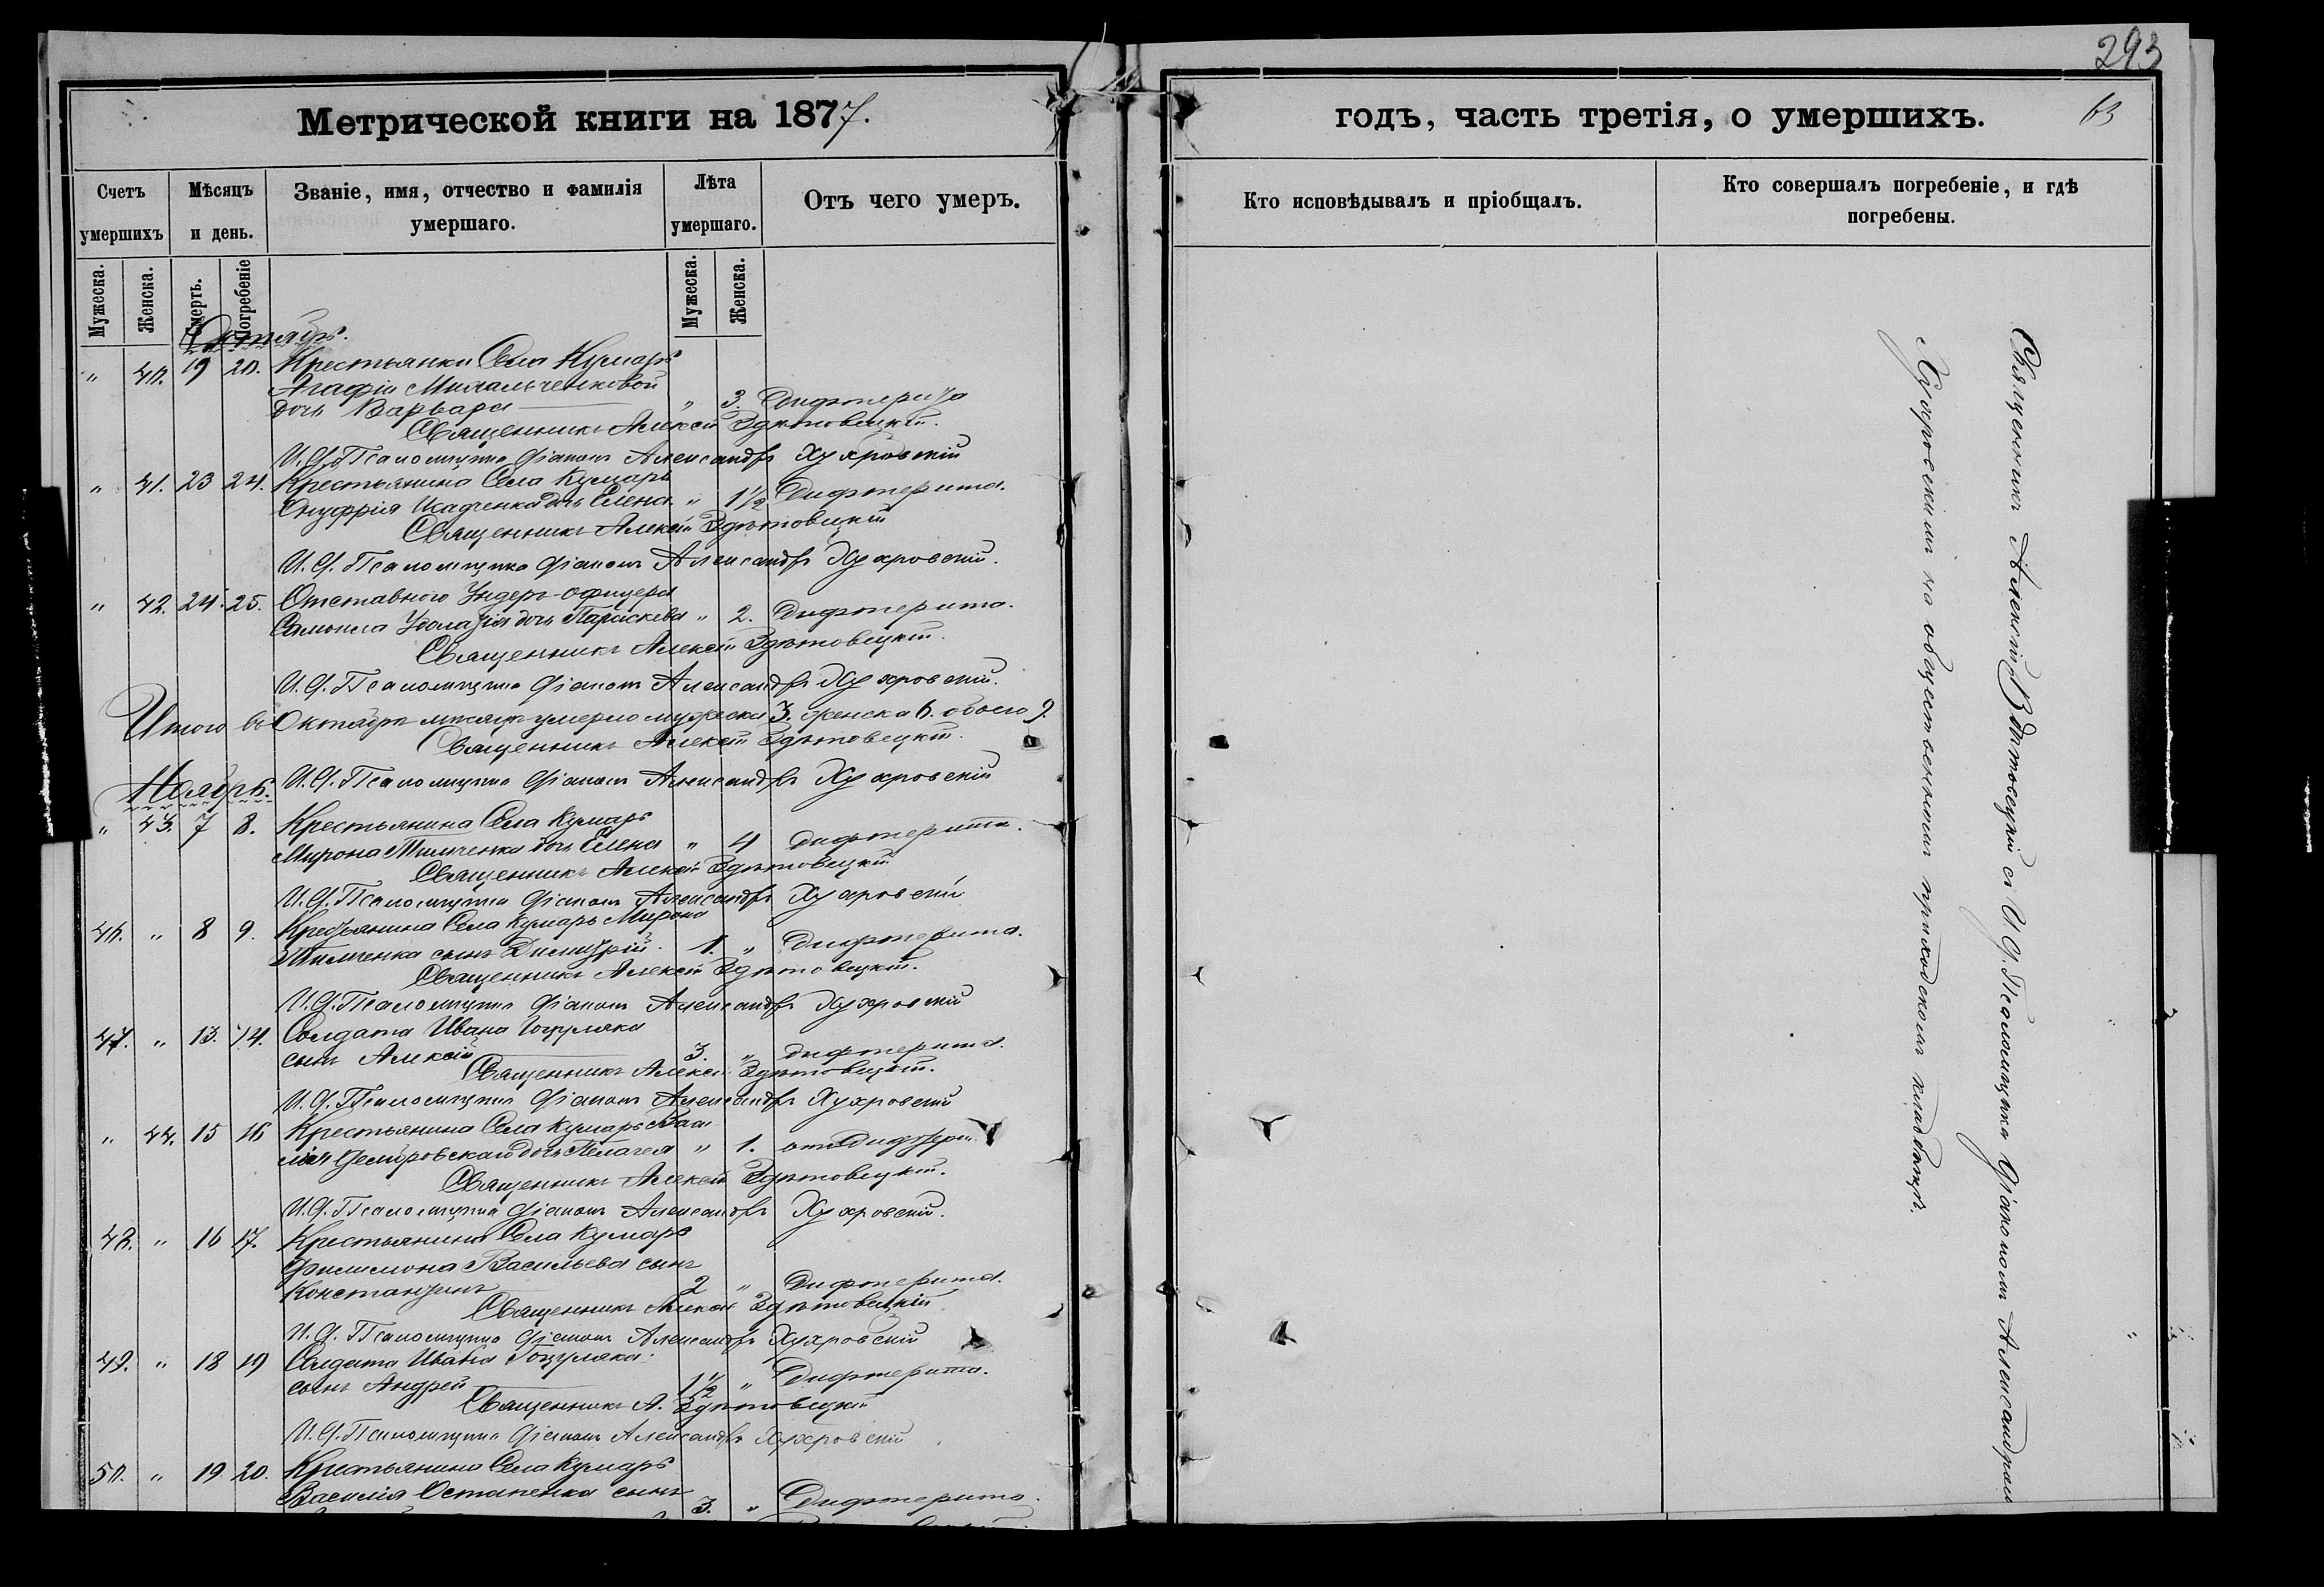 293
Метрической книги на 1877.
годъ, часть третія, о умершихъ.
63
Счетъ умершихъ
Мѣсяцъ и день.
Званіе, имя, отчество и фамилія умершаго.
Лѣта умершаго.
Отъ чего умеръ.
Кто исповѣдывалъ и пріобщалъ.
Кто совершалъ погребеніе, и гдѣ погребены.
Мужеска. Женска. Смерть. Погребеніе Мужеска. Женска.
Октябрь.
" 40. 19 20. Крестьянки Села Кумаръ
Агафіи
дочь Варвара " 3. Дифтерита
Священникъ Алексій Здѣтовецкій.
И. Д. Псаломщика Діаконъ Александръ Хухровскій
" 41. 23 24. Крестьянина Села Кумаръ
Онуфрія дочь Елена. " 1½ Дифтерита.
Священникъ Алексій Здѣтовецкій
И. Д. Псаломщика Діаконъ Александръ Хухровскій.
" 42. 24. 25. Отставного Ундеръ-Офицера
Самоила дочь Параскева " 2. Дифтерита.
Священникъ Алексій Здѣтовецкій.
И. Д. Псаломщика Діаконъ Александръ Хухровскій.
Итого въ Октябрѣ мѣсяцѣ умерло мужеска 3. женска 6. обоего 9.
Священникъ Алексій Здѣтовецкій.
И. Д. Псаломщика Діаконъ Александръ Хухровскій
Ноябрь.
" 43. 7 8. Крестьянина Села Кумаръ
Мирона Тимченка дочь Елена " 4 дифтерита.
Священникъ Алексій Здѣтовецкій
И. Д. Псаломщика Діаконъ Александръ Хухровскій
46. " 8 9. Крестьянина Села Кумаръ Мирона
Тимченка сынъ Димитрій. 1. " Дифтерита.
Священникъ Алексій Здѣтовецкій.
И. Д. Псаломщика Діаконъ Александръ Хухровскій
47. " 13. 14. Солдата Ивана
сынъ Алексій 3. " дифтерита.
Священникъ Алексій Здѣтовецкій.
И. Д. Псаломщика Діаконъ Александръ Хухровскій
" 44. 15 16 Крестьянина Села Кумаръ Васи
лія дочь Пелагея " 1. отъ
Священникъ Алексій Здѣтовецкій.
И. Д. Псаломщика Діаконъ Александръ Хухровскій.
48. " 16 17. Крестьянина Села Кумаръ
Филимона Васильева сынъ
Константинъ 2 " Дифтерита.
Священникъ Алексій Здѣтовецкій
И. Д. Псаломщика Діаконъ Александръ Хухровскій
49. " 18 19 Солдата Ивана
сынъ Андрей 1½ " Дифтерита.
Священникъ А. Здѣтовецкій
И. Д. Псаломщика Діаконъ Александръ Хухровскій
50. " 19 20. Крестьянина Села Кумаръ
Василія Остапенка сынъ 3. " Дифтерита.
Священникъ Алексій Здѣтовецкій съ И. Д. Псаломщика Діакономъ Александромъ
Хухровскимъ на общественномъ приходскомъ кладбищѣ.